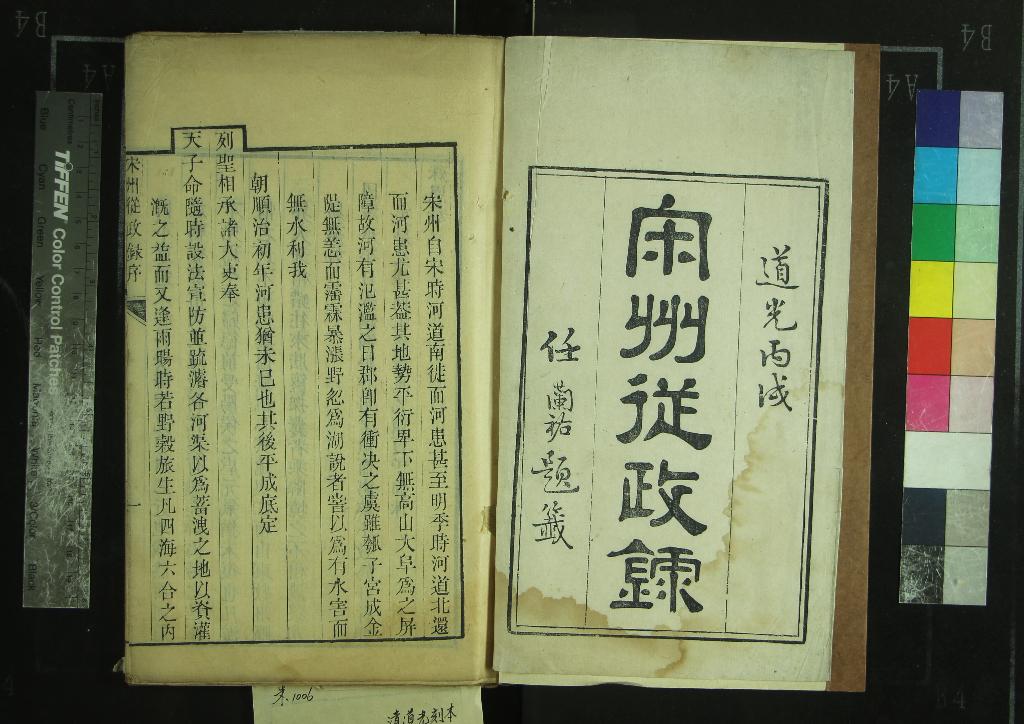 道光丙戌
宋州從政錄
任蘭祐題籤
宋州自宋時河道南徙而河患甚至明季時河道北還
而河患尤甚蓋其地勢平衍畀下無高山大阜為之屏
障故河有汜濫之日郡即有衝決之虞雖瓠子宮成金
隄無恙而霪霖暴漲野忽為湖說者嘗以為有水害而
無水利我
朝順治初年河患猶未已也其後平成底定
列聖相承諸大吏奉
天子命隨時設法宣防並疏濬各河渠以為蓄洩之地以資灌
溉之益而又逢雨暘時若野穀旅生凡四海六合之内
宋州從政錄序
一
B4
A4
B4
A4
B4
TIFFEN Color Control Patches
Centimetres
Blue
Cyan
Green
Yellow
Red
Magenta
White
3/Color
Black
朱.1006
清道光刻本